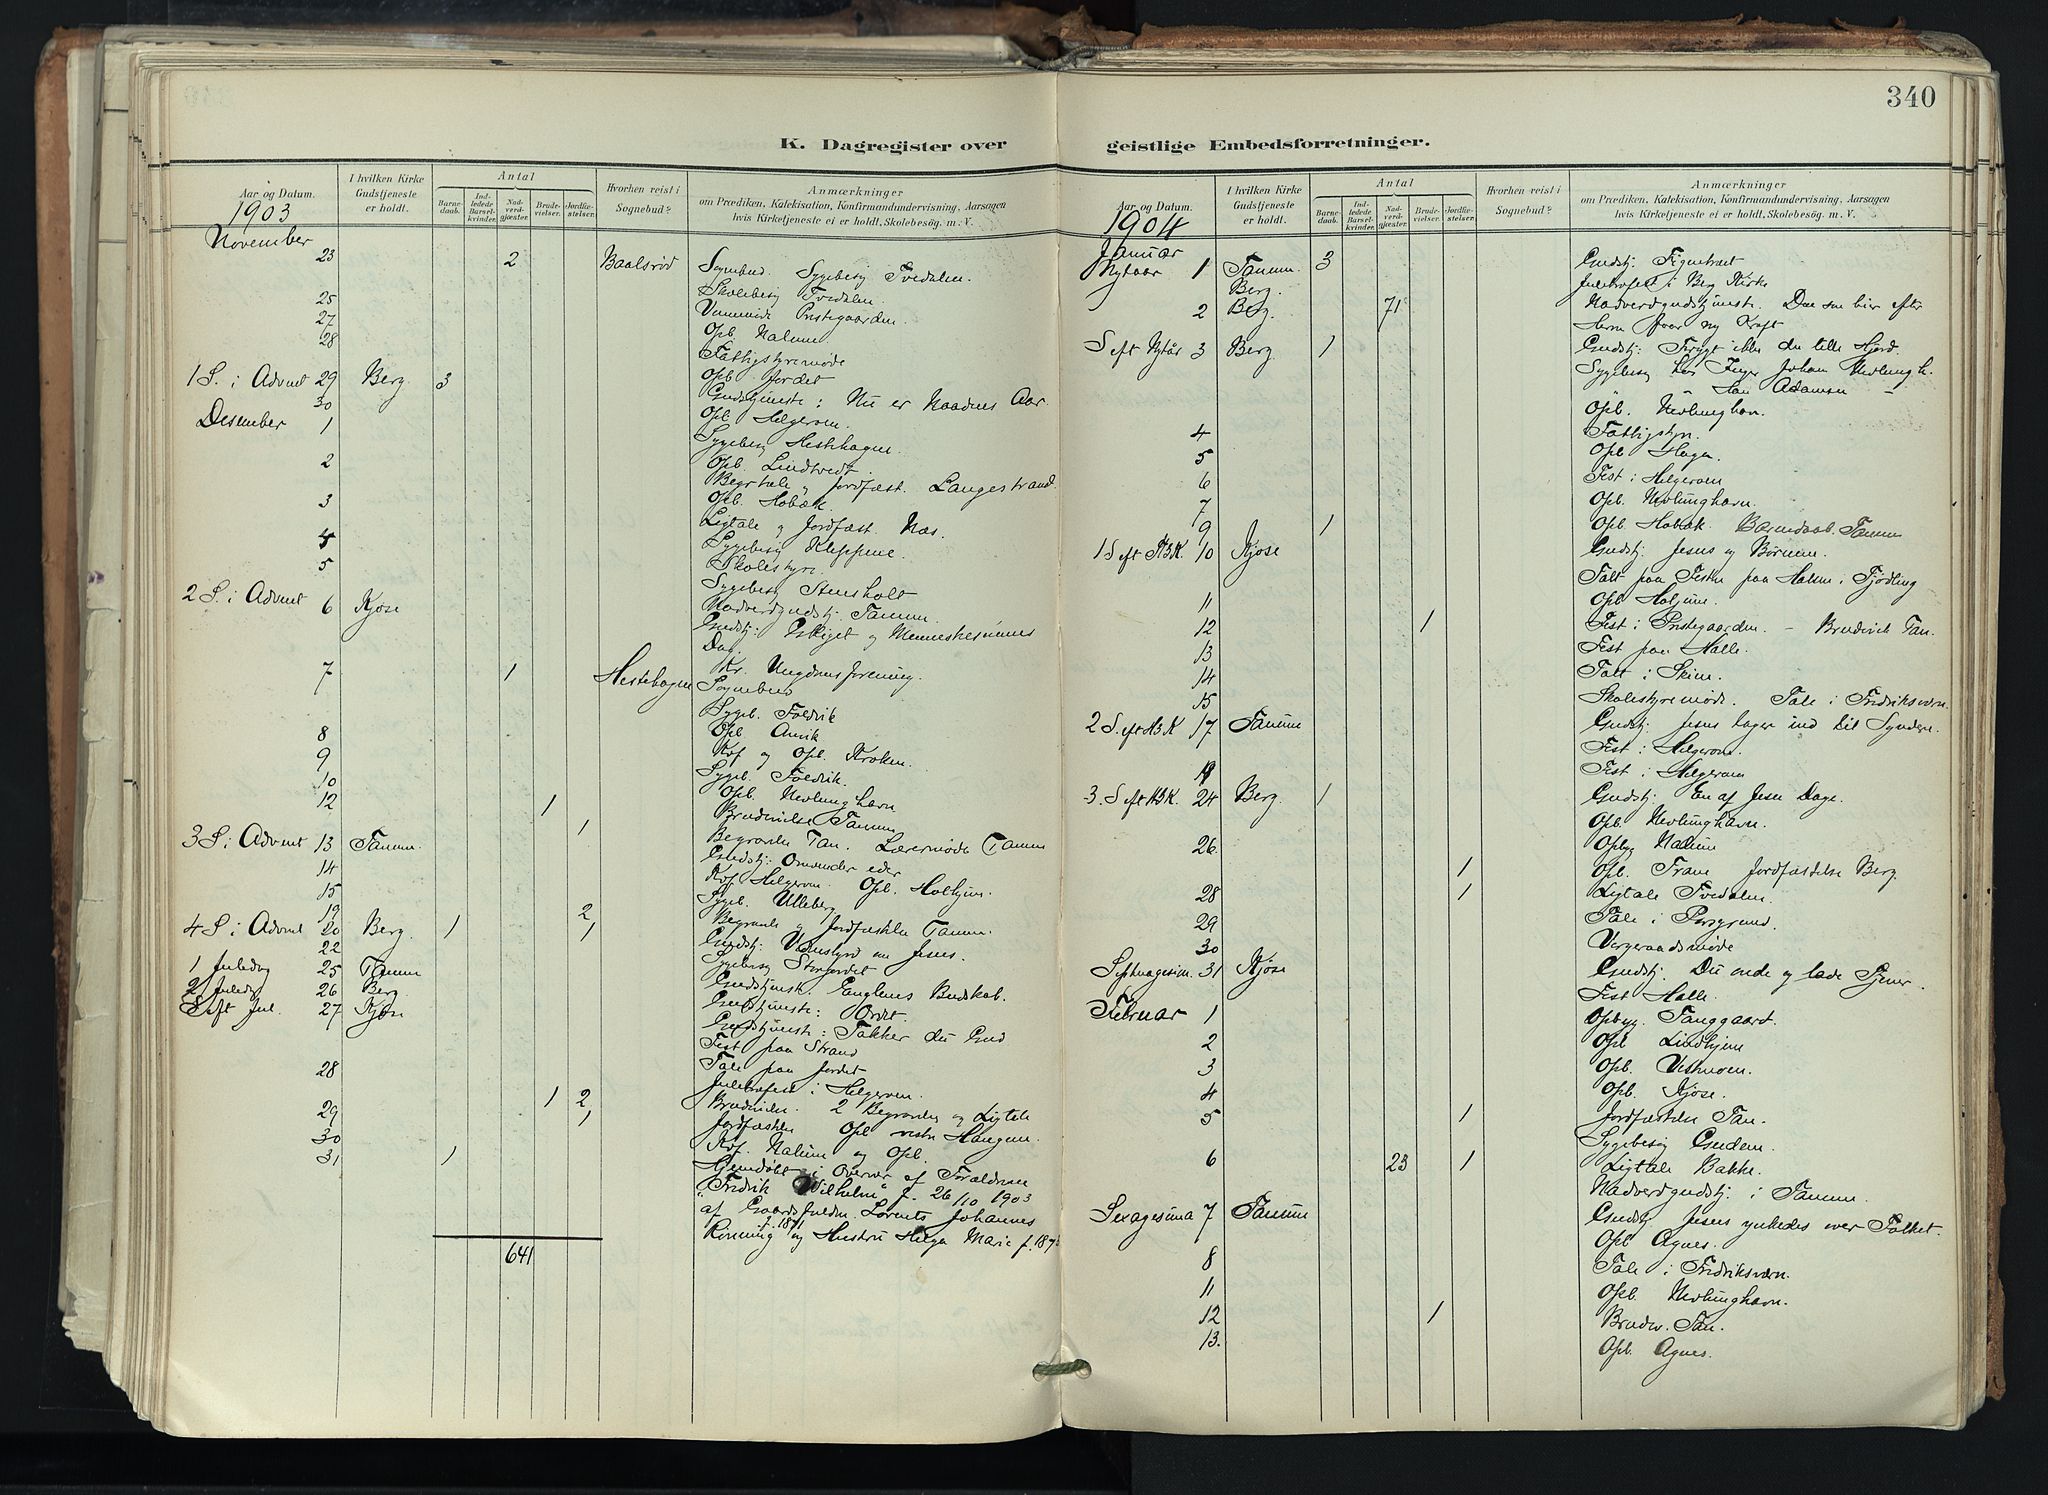 340
K. Dagregister over
Aar og Datum.
I hvilken Kirke Gudstjeneste er holdt.
Antal
Barnedaab.
Indledede Barselkvinder.
Nadverdgjester.
Brudevielser.
Jordfæstelser.
Hvorhen reist i Sognebud?
Anmærkninger
om Prædiken, Katekisation, Konfirmandundervisning, Aarsagen
hvis Kirketjeneste ei er holdt, Skolebesøg. m. V.
1903
November
23 2 Baalsrød Sognebud. Sygebesøg Tvedalen.
Skolebesøg Tvedalen.
25
27 Prestegaarden.
28 Opb. Nalum.
Fattigstyremøde
1 S. i Advent 29 Berg. 3 Opb. Jordet
30 Gudstjeneste: Nu er Naadens Aar.
Desember 1 Opb. Helgeroen.
Sygebesøg Hestehagen.
2 Opb. Lindtvedt.
Begr.tale og Jordfæst. Langestrand.
3 Opb. Hobæk.
Ligtale og Jordfæst. Næs.
4 Sygebesøg Kleppene.
5 Skolestyre.
Sygebesøg Stensholt
2 S. i Advent 6 Kjose Nadverdgudstj. Tanum.
Gudstj: og Menneskesønnens
Dag.
7 1 Hestehagen Kr. Ungdomsforening.
Sognebud
Sygeb. Foldvik
8 Opb. Anvik
9 Kof og Opb. Kroken.
10 Sygeb. Foldvik.
12 1 Opb. Nevlunghavn
1 Brudevielse Tanum
3 S. i Advent 13 Tanum. Begravelse Tan. Læremøde Tanum
14 Gudstj: Omvender eder
15 Kof Helgeroen. Opb. Holhjem.
19 2 Sygeb. Ulleberg
4 S. i Advent 20 Berg. 1 1 Begravels og Jordfæstelse Tanum.
22 Gudstj: Vidnesbyrd om Jesus.
1 Juledag 25 Tanum Sygebesøg Storjordet
2 Juledag 26 Berg. Gudstjeneste. Englenes Budskab.
S. eft Jul. 27 Kjose Gudstjeneste: Ordet.
Gudstjeneste: Takker du Gud
Fest paa Strand
28 Tale paa Jordet
Juletræfest i Helgeroen.
29 1 2 Brudevielse. 2 Begravelser og Ligtale
1 Jordfæstelse Opb vestre Haugen.
30 Kof. Nalum og Opb.
31 1 Hjemdøbt i Overvær af Forældrene
"Fredrik Wilhelm" f. 26/10 1903
af Gaardsfuldm. Lorents Johannes
f. 1871
Rønning og Hustru Helga Marie f. 187
641
340
geistlige Embedsforretninger.
Aar og Datum.
I hvilken Kirke Gudstjeneste er holdt.
Antal
Barnedaab.
Indledede Barselkvinder.
Nadverdgjester.
Brudevielser.
Jordfæstelser.
Hvorhen reist i Sognebud?
Anmærkninger
om Prædiken, Katekisation, Konfirmandundervisning, Aarsagen
hvis Kirketjeneste ei er holdt, Skolebesøg. m. V.
1904
Januar
Nytaar 1 Tanum. 3 Gudstj: Figentræet
Berg. Juletræfest i Berg Kirke
2 Berg. 71 Nadverdgudstjeneste. De som bier efter
Herren faar ny Kraft
S eft Nytår 3 Berg. 1 Gudstj: Frygt ikke du lille Hjord.
Sygebesøg hos Johan Nevlungh.
" " Adamsen "
Opb. Nevlunghavn.
4 Fattigstyr.
5 Opb Hagen.
6 Fest i Helgeroen
7 Opb. Nevlunghavn.
9 1 Opb Hobæk. Barnedaab. Tanum
1 S eft H3K. 10 Kjose Gudstj. Jesus og Børnene.
Talt paa Festen paa Halsen i Tjødling
11 Opb Holjem.
12 1 Fest i Prestegaarden. - Brudeviels Tan.
13 Fest paa Halle.
14 Talt i Skien.
15 Skolestyremøde. Tale i Fredriksværn.
2 S. eft H3K 17 Tanum Gudstj: Jesus tager ind til Syndere.
Fest i Helgeroen.
19 Fest i Helgeroen
3. S eft H3K. 24 Berg. 1 Gudstj: En af Jesu Dage.
Opb. Nevlunghavn.
26. Opbyg Nalum
1 Opb. Trane Jordfæstelse Berg.
28 1 Ligtale Tvedalen.
29 Tale i Porsgrund.
30 Vergeraadsmøde
Septuagesim. 31 Kjose Gudstj. Du onde og lade Tjener.
Fest Halle.
Februar 1 Opbyg. Tanggaard.
2 Opb Lindhjem
3 Opb. Vestmoen.
4 Opb. Kjose.
5 1 Jordfæstelse Tan.
Sygebesøg Gudem.
6 23 1 Ligtale Bakke.
Nadverdgudstj: i Tanum.
Sexagesima 7 Tanum Gudstj. Jesus ynkedes over Folket.
Opb Agnes.
8 Tale i Fredriksværn.
11 Opb. Nevlunghavn.
12 1 Brudev. Tan.
13. Opb. Agnes.